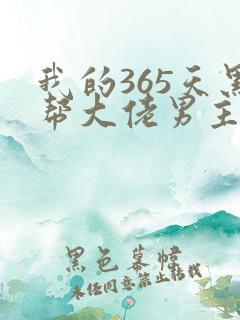 我的365天黑
帮大佬男主
黑色幕帷
未经同意禁止转载